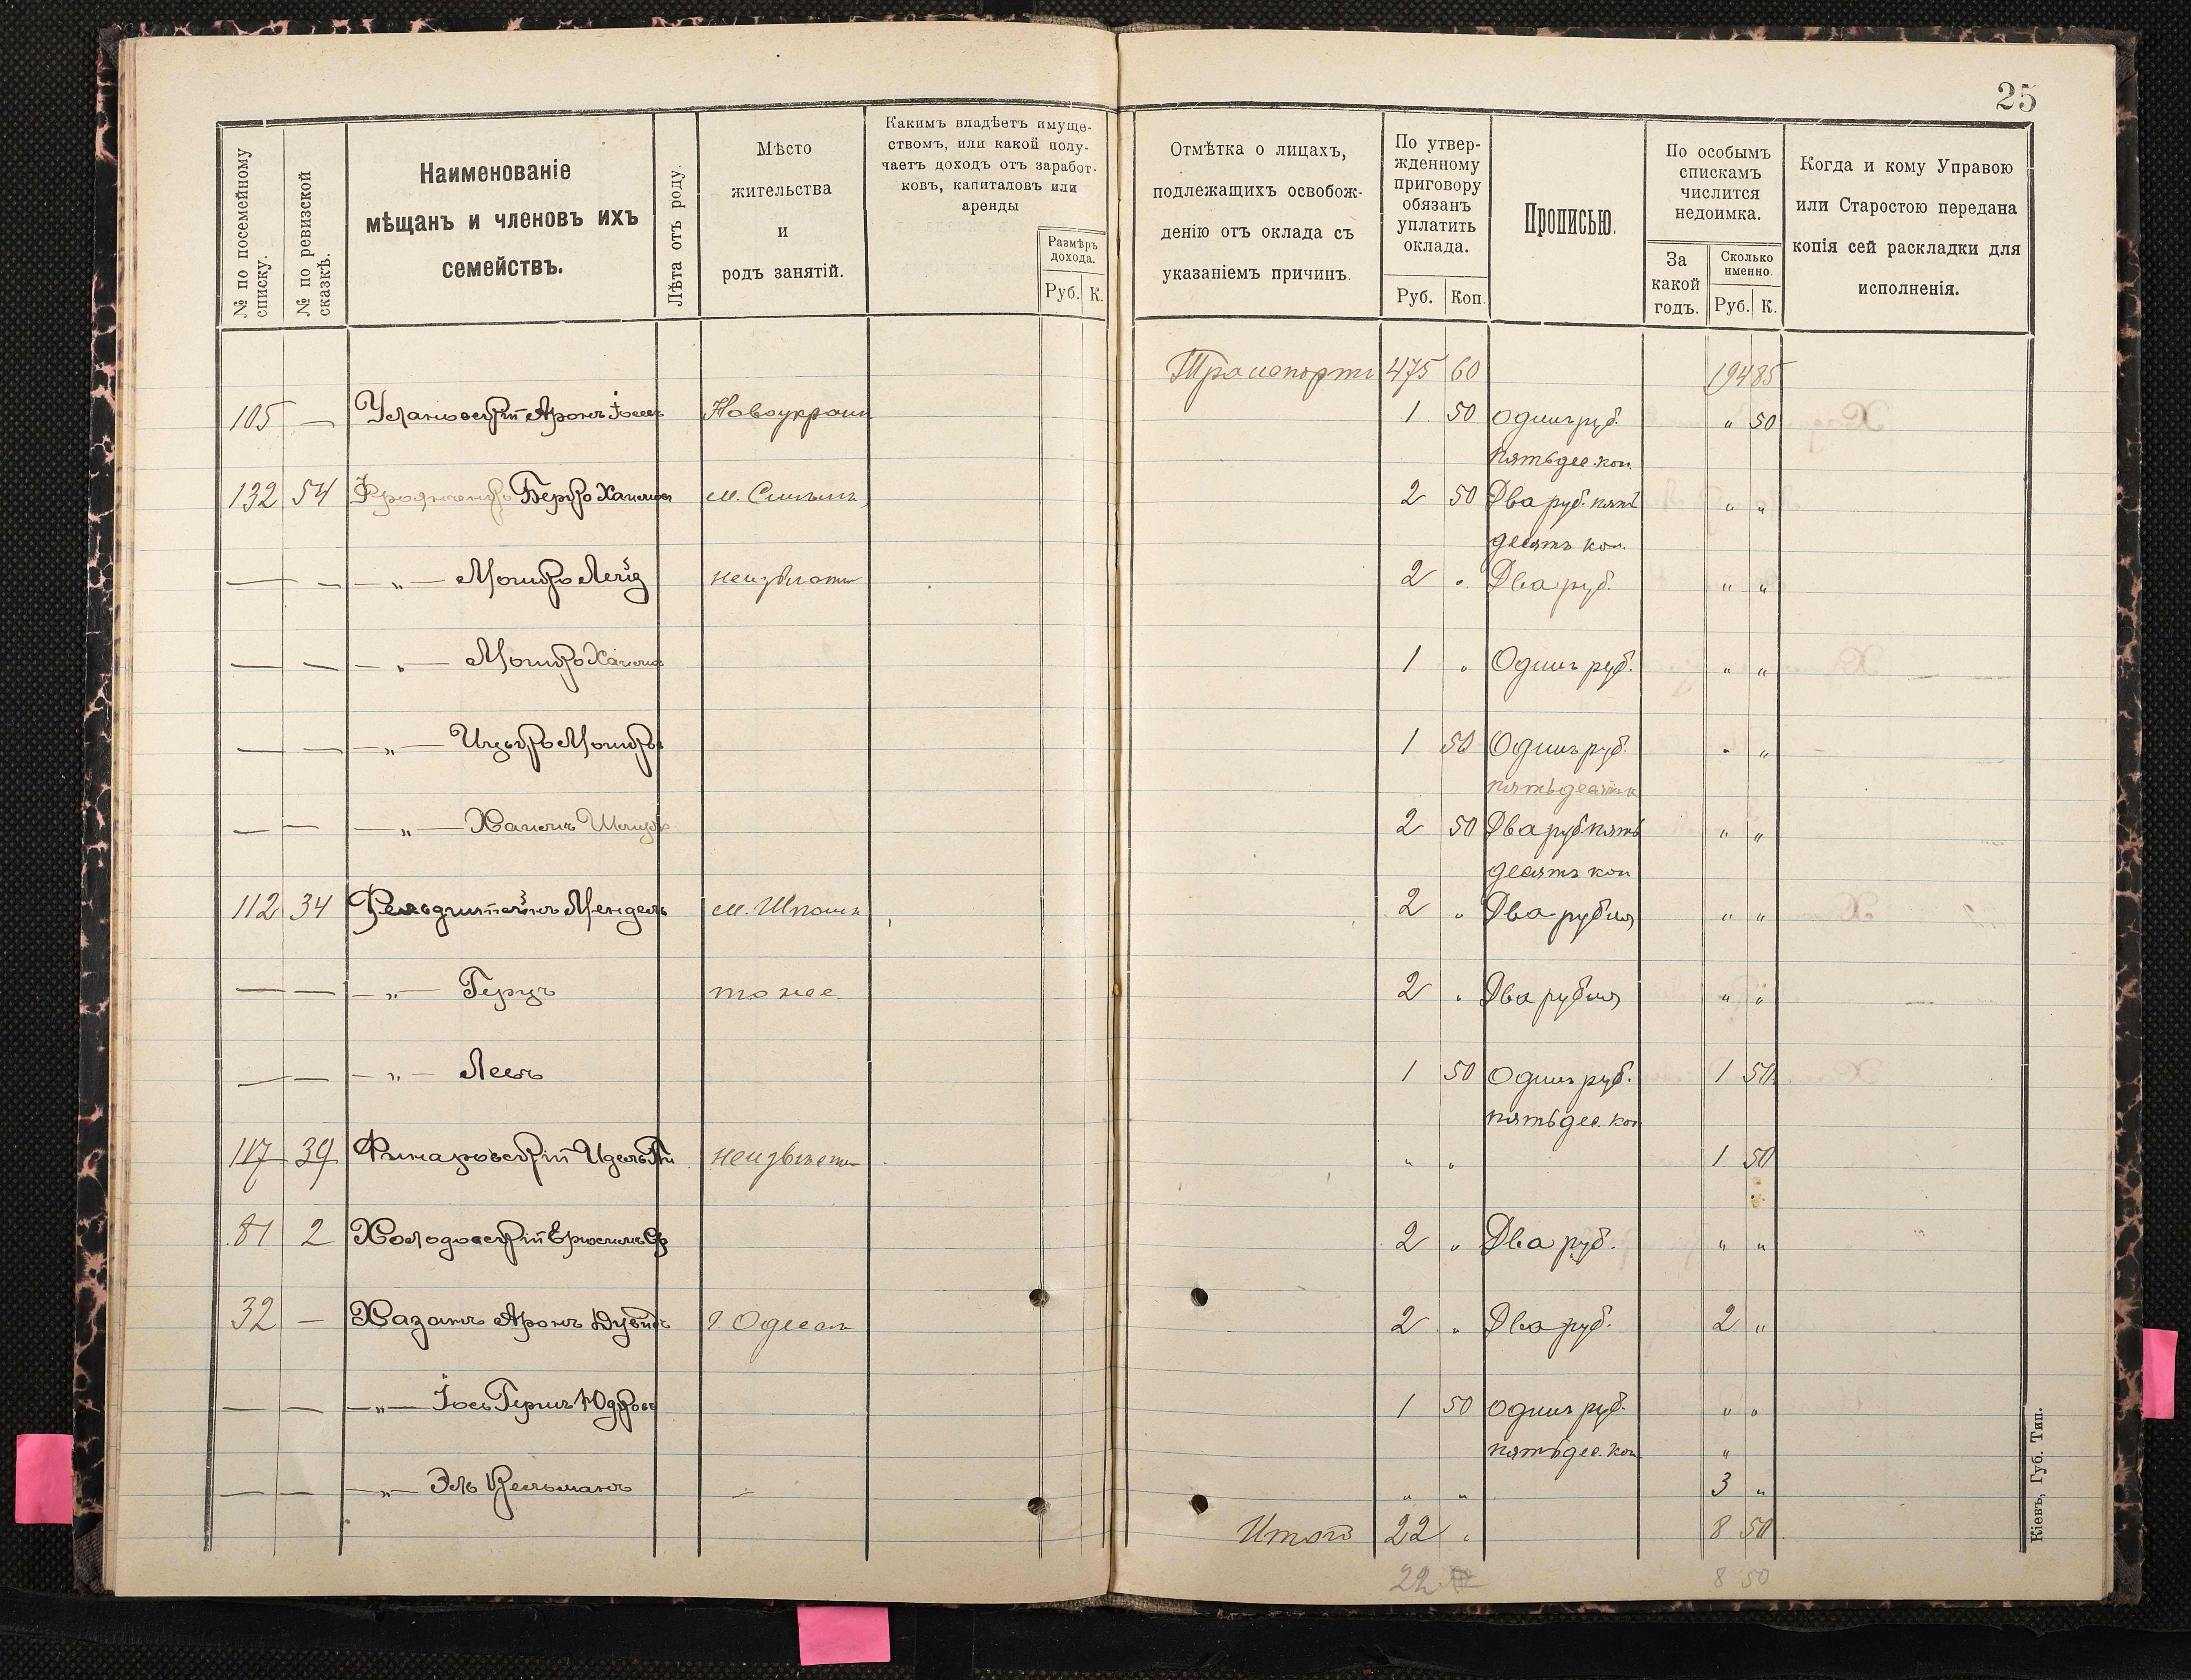 25
№ по посемейному списку.
№ по ревизской сказкѣ.
Наименованіе
мѣщанъ и членовъ ихъ
семействъ.
Лѣта отъ роду.
Мѣсто
жительства
и
родъ занятій.
Какимъ владѣетъ имуще-
ствомъ, или какой полу-
чаетъ доходъ отъ заработ-
ковъ, капиталовъ или
аренды
Размѣръ
дохода.
Руб. К.
Отмѣтка о лицахъ,
подлежащихъ освобож-
денію отъ оклада съ
указаніемъ причинъ.
По утвер-
жденному
приговору
обязанъ
уплатить
оклада.
Руб. Коп.
Прописью.
По особымъ
спискамъ
числится
недоимка.
За
какой
годъ.
Сколько
именно.
Руб. К.
Когда и кому Управою
или Старостою передана
копія сей раскладки для
исполненія.
Транспортъ 475 60 194 85
105 — Улановскій Аронъ Новоукраин 1 50 Одинъ руб. " 50
пятьдес. коп.
132 54 Берко м. 2 50 Два руб. пять " "
десять коп.
— — — " — Мошко Лейз 2 " Два руб. " "
— — — " — Мошко 1 " Одинъ руб. " "
— — — " — Ицько Мошков 1 50 Одинъ руб. " "
пятьдесятъ к
— — — " — 2 50 Два руб пять " "
десять коп
112 34 Фельдштейнъ Мендель м. Шпола 2 " Два рубля " "
— — — " — Герцъ тоже 2 " Два рубля " "
— — — " — Лейб 1 50 Одинъ руб. 1 50
пятьдес. коп
117 39 Идель неизвѣстно " " 1 50
81 2 Холодовскій 2 " Два руб. " "
32 — Хазанъ Аронъ Дувид г. Одесса 2 " Два руб. 2 "
— — — " — Іось Гершъ Юдков 1 50 Одинъ руб. " "
пятьдес. коп "
— — — " — Эль Кельманъ " " 3 "
Итого 22 " 8 50
22 8 50
Кіевъ, Губ. Тип.